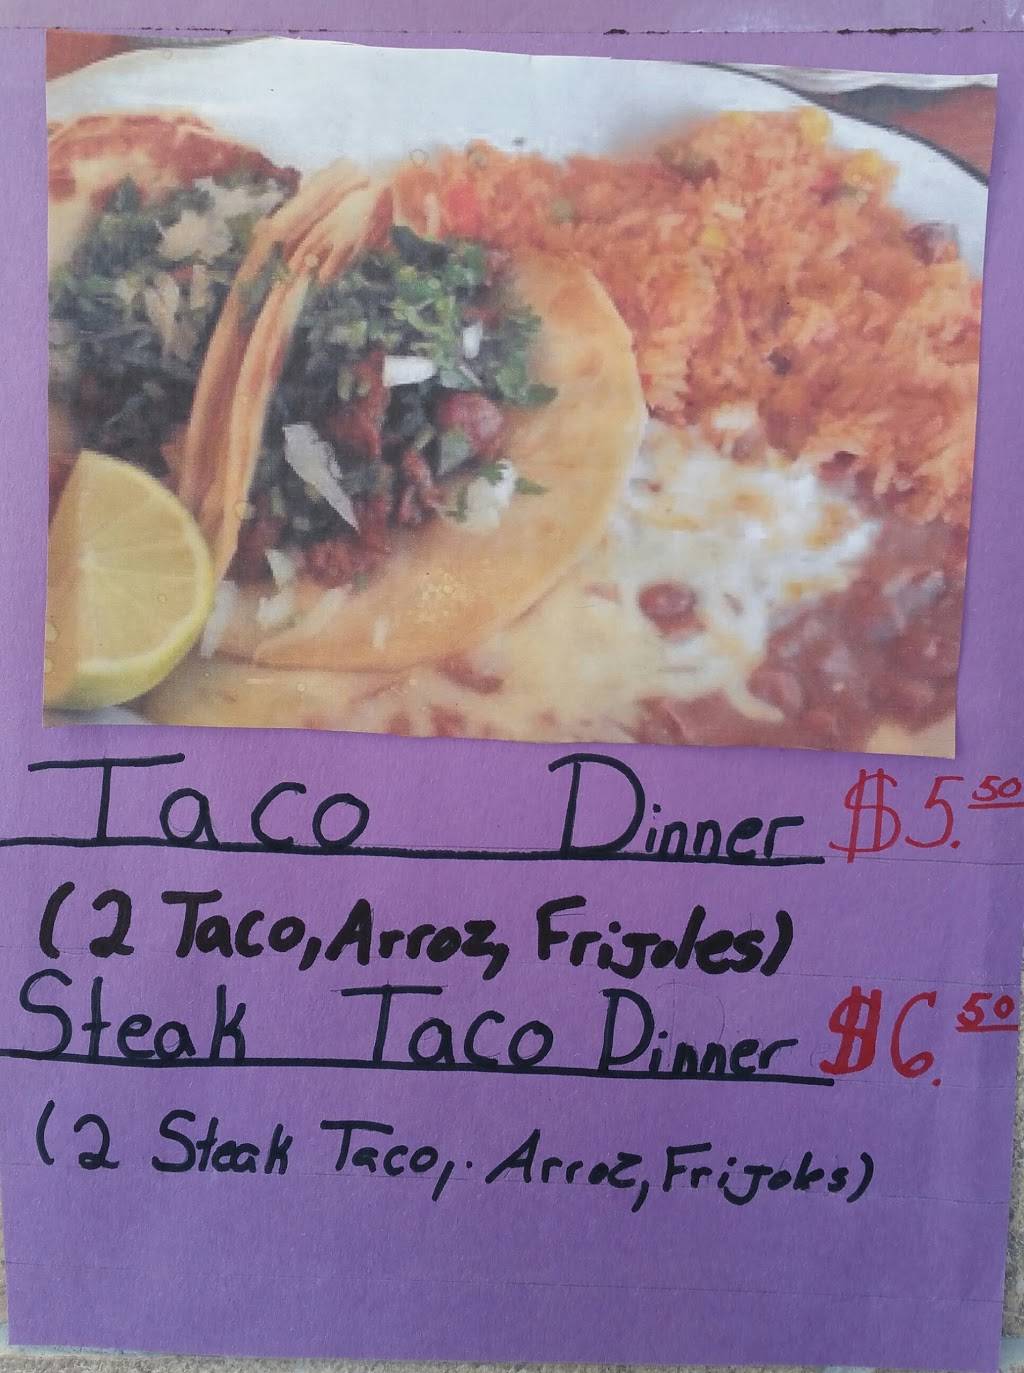 Taco Dinner $5.50
(2 Taco, Arroz, Frijoles)
Steak Taco Dinner $6.50
(2 Steak Taco, Arroz, Frijoles)